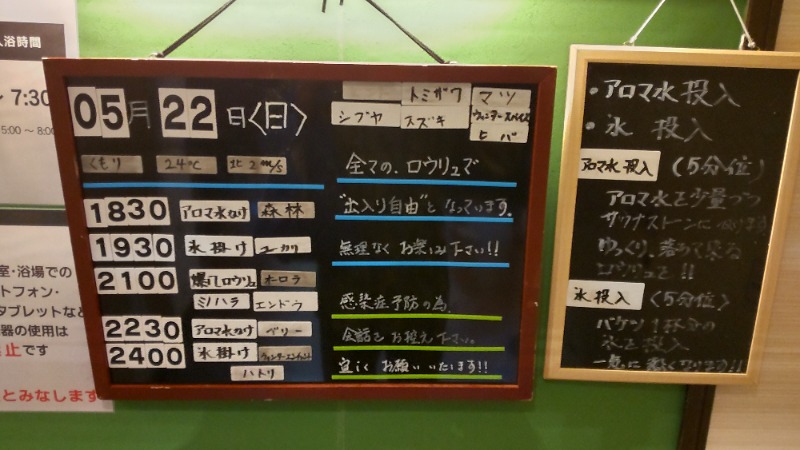 入浴時間
~ 7:30
5:00 ~ 8:00
室・浴場での
トフォン・
タブレットなど
器の使用は
止です
とみなします
05月22日〈日〉
くもり 24℃ 北2m/s
1830 アロマ水かけ 森林
1930 氷掛け ユーカリ
2100 爆風ロウリュ オーロラ
ミノハラ エンドウ
2230 アロマ水かけ ベリー
2400 氷掛け
ハトリ
トミザワ マツ
シブヤ スズキ
ヒバ
全ての、ロウリュで
"出入り自由"となっています。
無理なく お楽しみ下さい!!
感染症予防の為、
会話を お控え下さい。
宜しく お願い いたします!!
・アロマ水投入
・氷 投入
アロマ水投入 (5分位)
アロマ水を少量づつ
サウナストーンに
ゆっくり
ロウリュを!!
氷投入 (5分位)
バケツ1杯分の
氷を投入
一気に 熱くなります!!